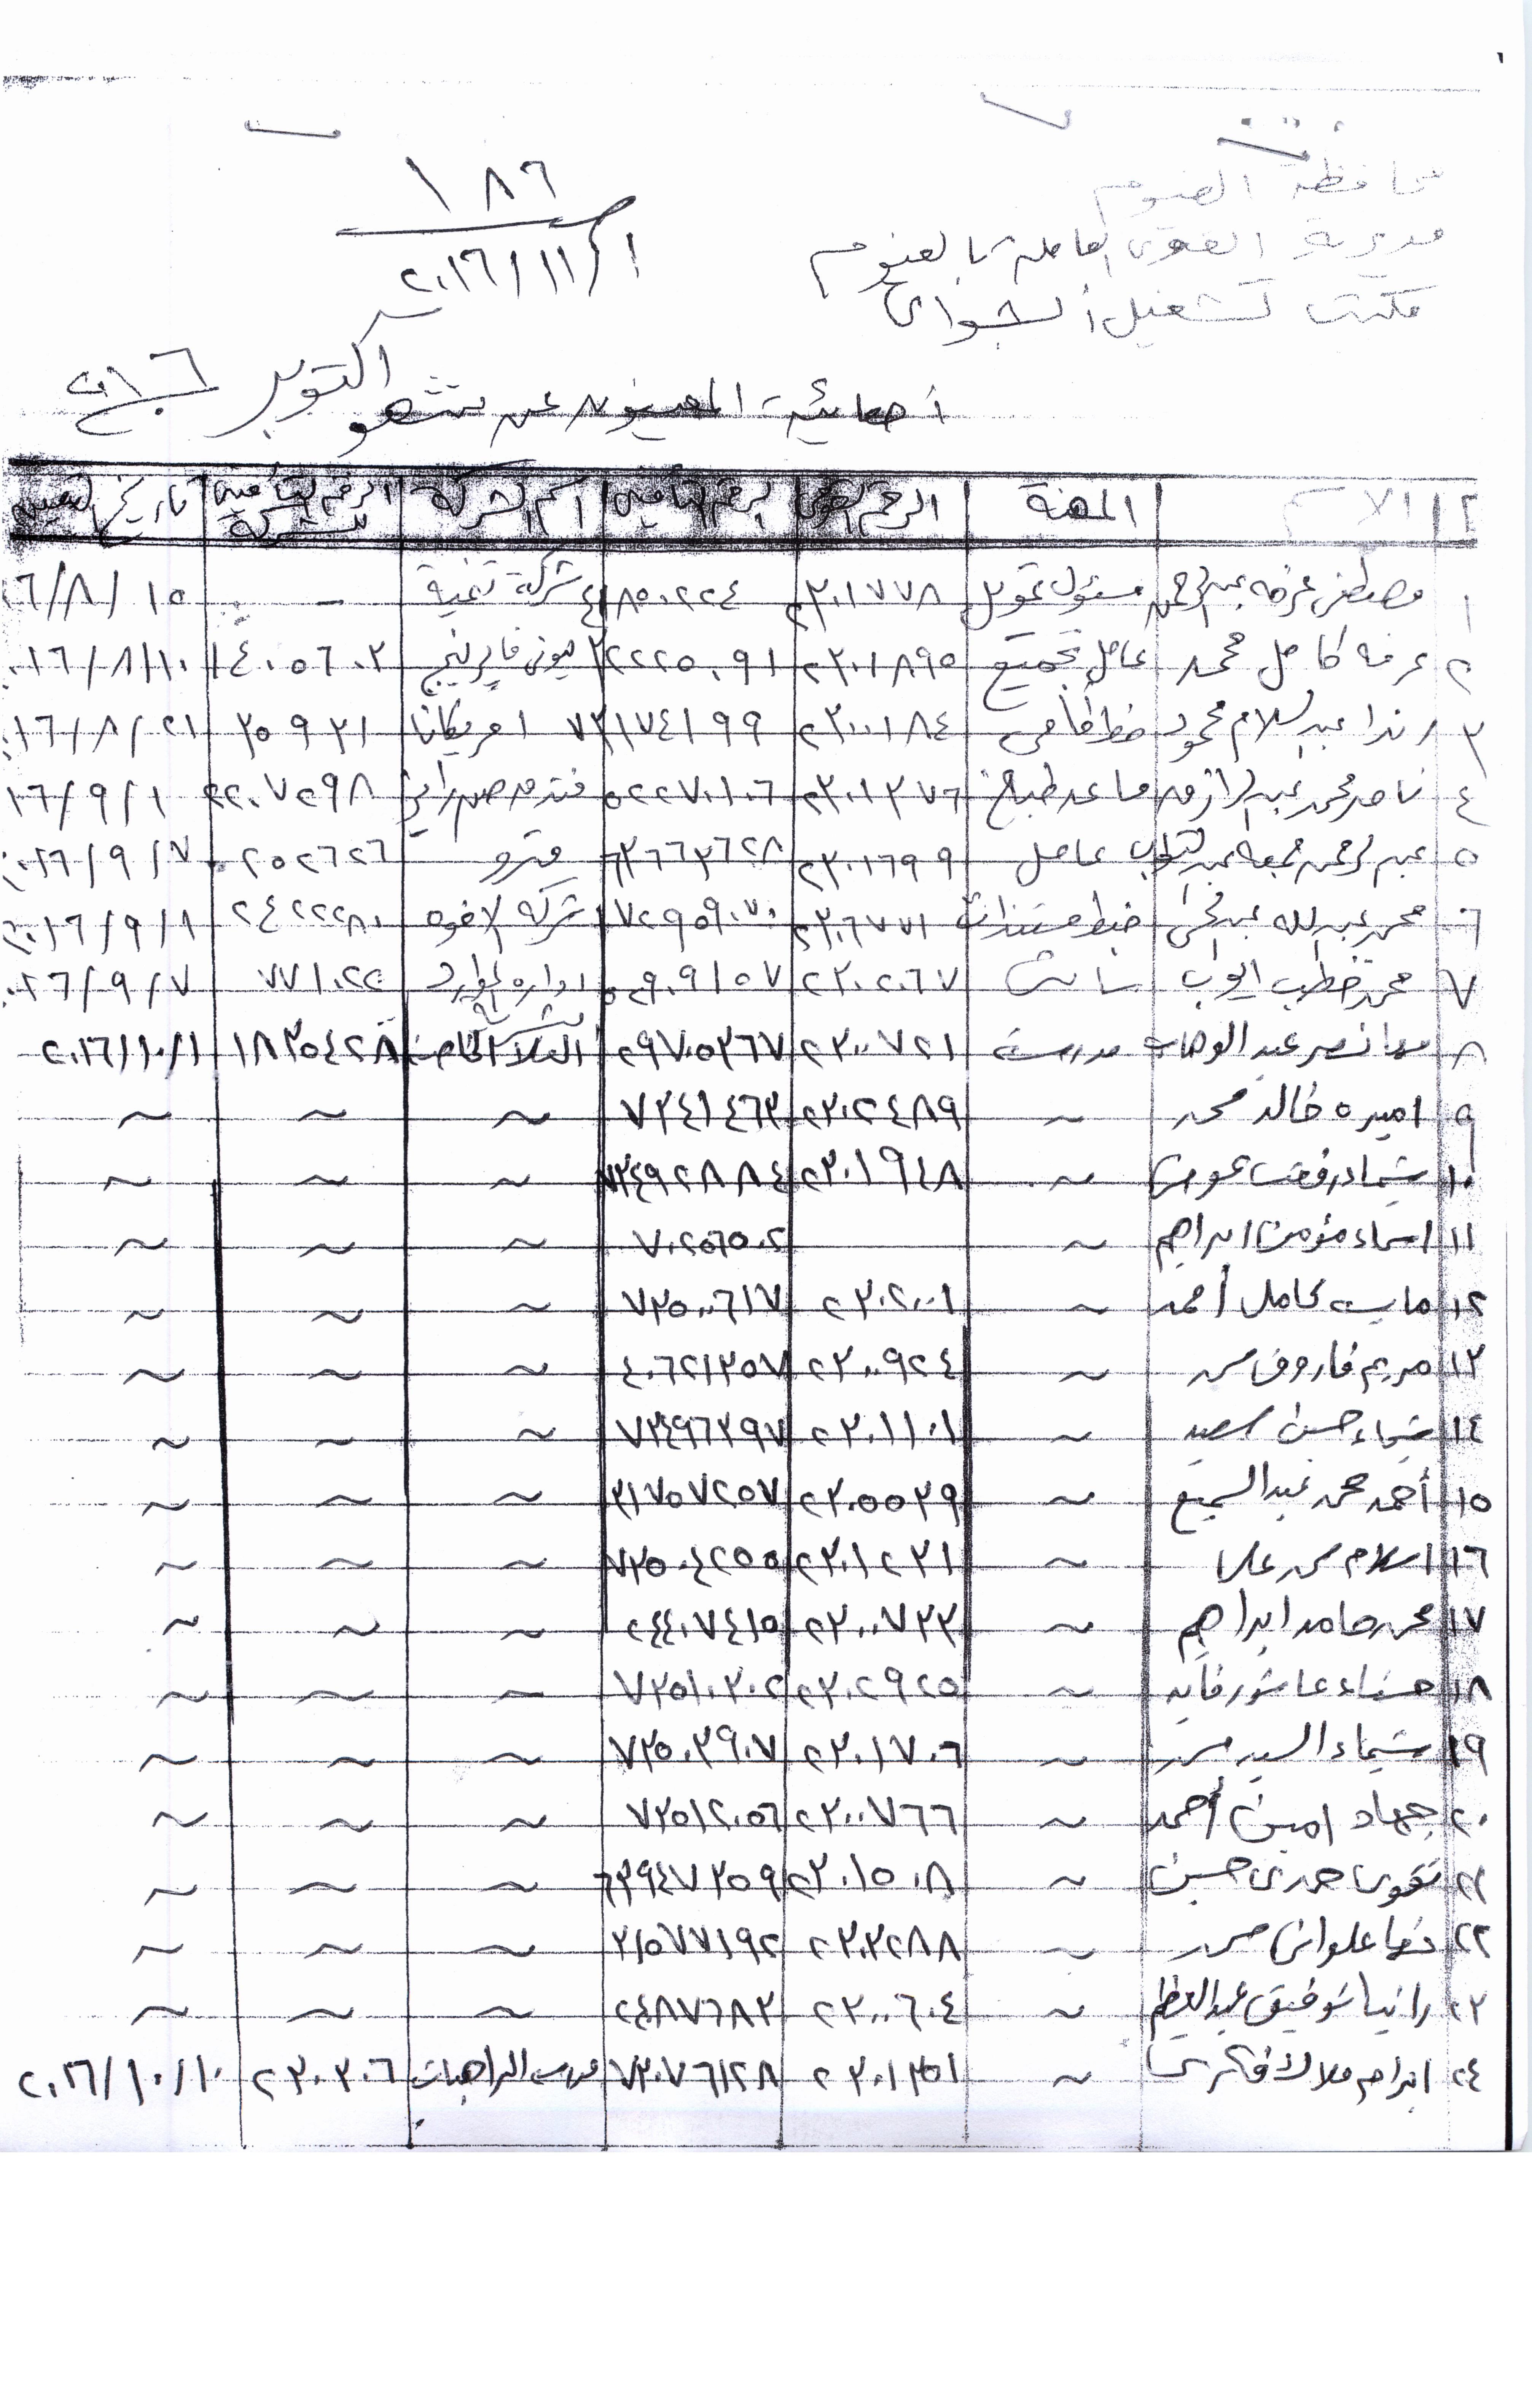 محافظة الفيوم
مديرية القوى العاملة بالفيوم
مكتب تشغيل الشواشى
١٨٦
٢٠١٦/١١/١
أحصائية المعينون عن شهر أكتوبر ٢٠١٦
م الاسم المهنة الرقم القومى الرقم التأمينى اسم الشركة الرقم التأمينى للشركة تاريخ التعيين
١ مصطفى عرفه عبدالرحمن مسئول تمويل ٢٣٠١٧٧٨ ٤١٨٥٠٢٢٤ شركة تنمية - ٦/٨/١٥
٢ عرفه كامل محمد عامل تجميع ٢٣٠١٨٩٥ ٢٢٢٢٥٠٩١ ١٤٠٥٦٠٢ ٠١٦/٨/١٠
٣ رندا عبدالسلام محمود خط أمامى ٢٣٠٠١٨٤ ٧٢١٧٤١٩٩ امريكانا ٣٥٩٣١ ٠١٦/٨/٢١
٤ ناصر محمد عبدالرازق مساعد طباخ ٢٣٠١٣٧٦ ٥٢٢٧٠١٠٦ فندق ٢٢٠٧٢٩٨ ١٦/٩/١
٥ عبدالرحمن جمعه عبدالتواب عامل ٢٣٠١٦٩٩ ٦٣٦٦٣٦٢٨ مترو ٢٥٢٦٢٦ ٠١٦/٩/٧
٦ محمد عبدالله ضبط مستندات ٢٣٠٦٧٧١ ٧٢٩٥٩٠٧٠ شركة الاخوه ٢٤٢٢٢٨٠ ٢٠١٦/٩/١
٧ محمد قطب ايواب سائق ٢٣٠٢٠٦٧ ٥٢٩٠٩١٥٧ اداره الموارد ٧٧١٠٢٢ ٠١٦/٩/٧
٨ مها نصر عبد الوهاب مدرسة ٢٣٠٠٧٢١ ٢٩٧٠٥٣٦٧ ١٨٣٥٤٢٨ ٢٠١٦/١٠/١
٩ اميره خالد محمد ~ ٢٣٠٢٤٨٩ ٧٣٤١٤٦٣ ~ ~ ~
١٠ شيماء رفعت ~ ٢٣٠١٩٤٨ ٧٣٤٩٢٨٨٤ ~ ~ ~
١١ اسماء مؤمن ابراهيم ~ ٧٠٢٥٦٥٠٢ ~ ~ ~
١٢ مايسه كامل أحمد ~ ٢٣٠٢٠٠١ ٧٣٥٠٠٦١٧ ~ ~ ~
١٣ مريم فاروق محمد ~ ٢٣٠٠٩٢٤ ٤٠٦٢١٣٥٧ ~ ~ ~
١٤ شيماء حسن سعيد ~ ٢٣٠١١٠١ ٧٣٤٩٦٣٩٧ ~ ~ ~
١٥ أحمد محمد عبدالسميع ~ ٢٣٠٥٥٣٩ ٣١٧٥٧٢٥٧ ~ ~ ~
١٦ اسلام محمد على ~ ٢٣٠١٢٣١ ٧٣٥٠٤٢٥٥ ~ ~ ~
١٧ محمد حامد ابراهيم ~ ٢٣٠٠٧٣٣ ٢٤٤٠٧٤١٥ ~ ~ ~
١٨ حسناء عاشور فايد ~ ٢٣٠٢٩٢٥ ٧٣٥١٠٣٠٢ ~ ~ ~
١٩ شيماء السيد محمد ~ ٢٣٠١٧٠٦ ٧٣٥٠٣٩٠٧ ~ ~ ~
٢٠ جهاد امين أحمد ~ ٢٣٠٠٧٦٦ ٧٣٥١٢٠٥٦ ~ ~ ~
٢١ تقوى حمدى حسين ~ ٢٣٠١٥٠٨ ٦٣٩٤٧٣٥٩ ~ ~ ~
٢٢ علوانى محمد ~ ٢٣٠٣٢٨٨ ٣١٥٧٧١٩٢ ~ ~ ~
٢٣ رانيا توفيق عبدالعظيم ~ ٢٣٠٠٦٠٤ ٢٤٨٧٦٨٣ ~ ~ ~
٢٤ ابرام ميلاد فكرى ~ ٢٣٠١٣٥١ ٧٣٠٧٦١٢٨ مدرسة الراهبات ٢٣٠٣٠٦ ٢٠١٦/١٠/١٠